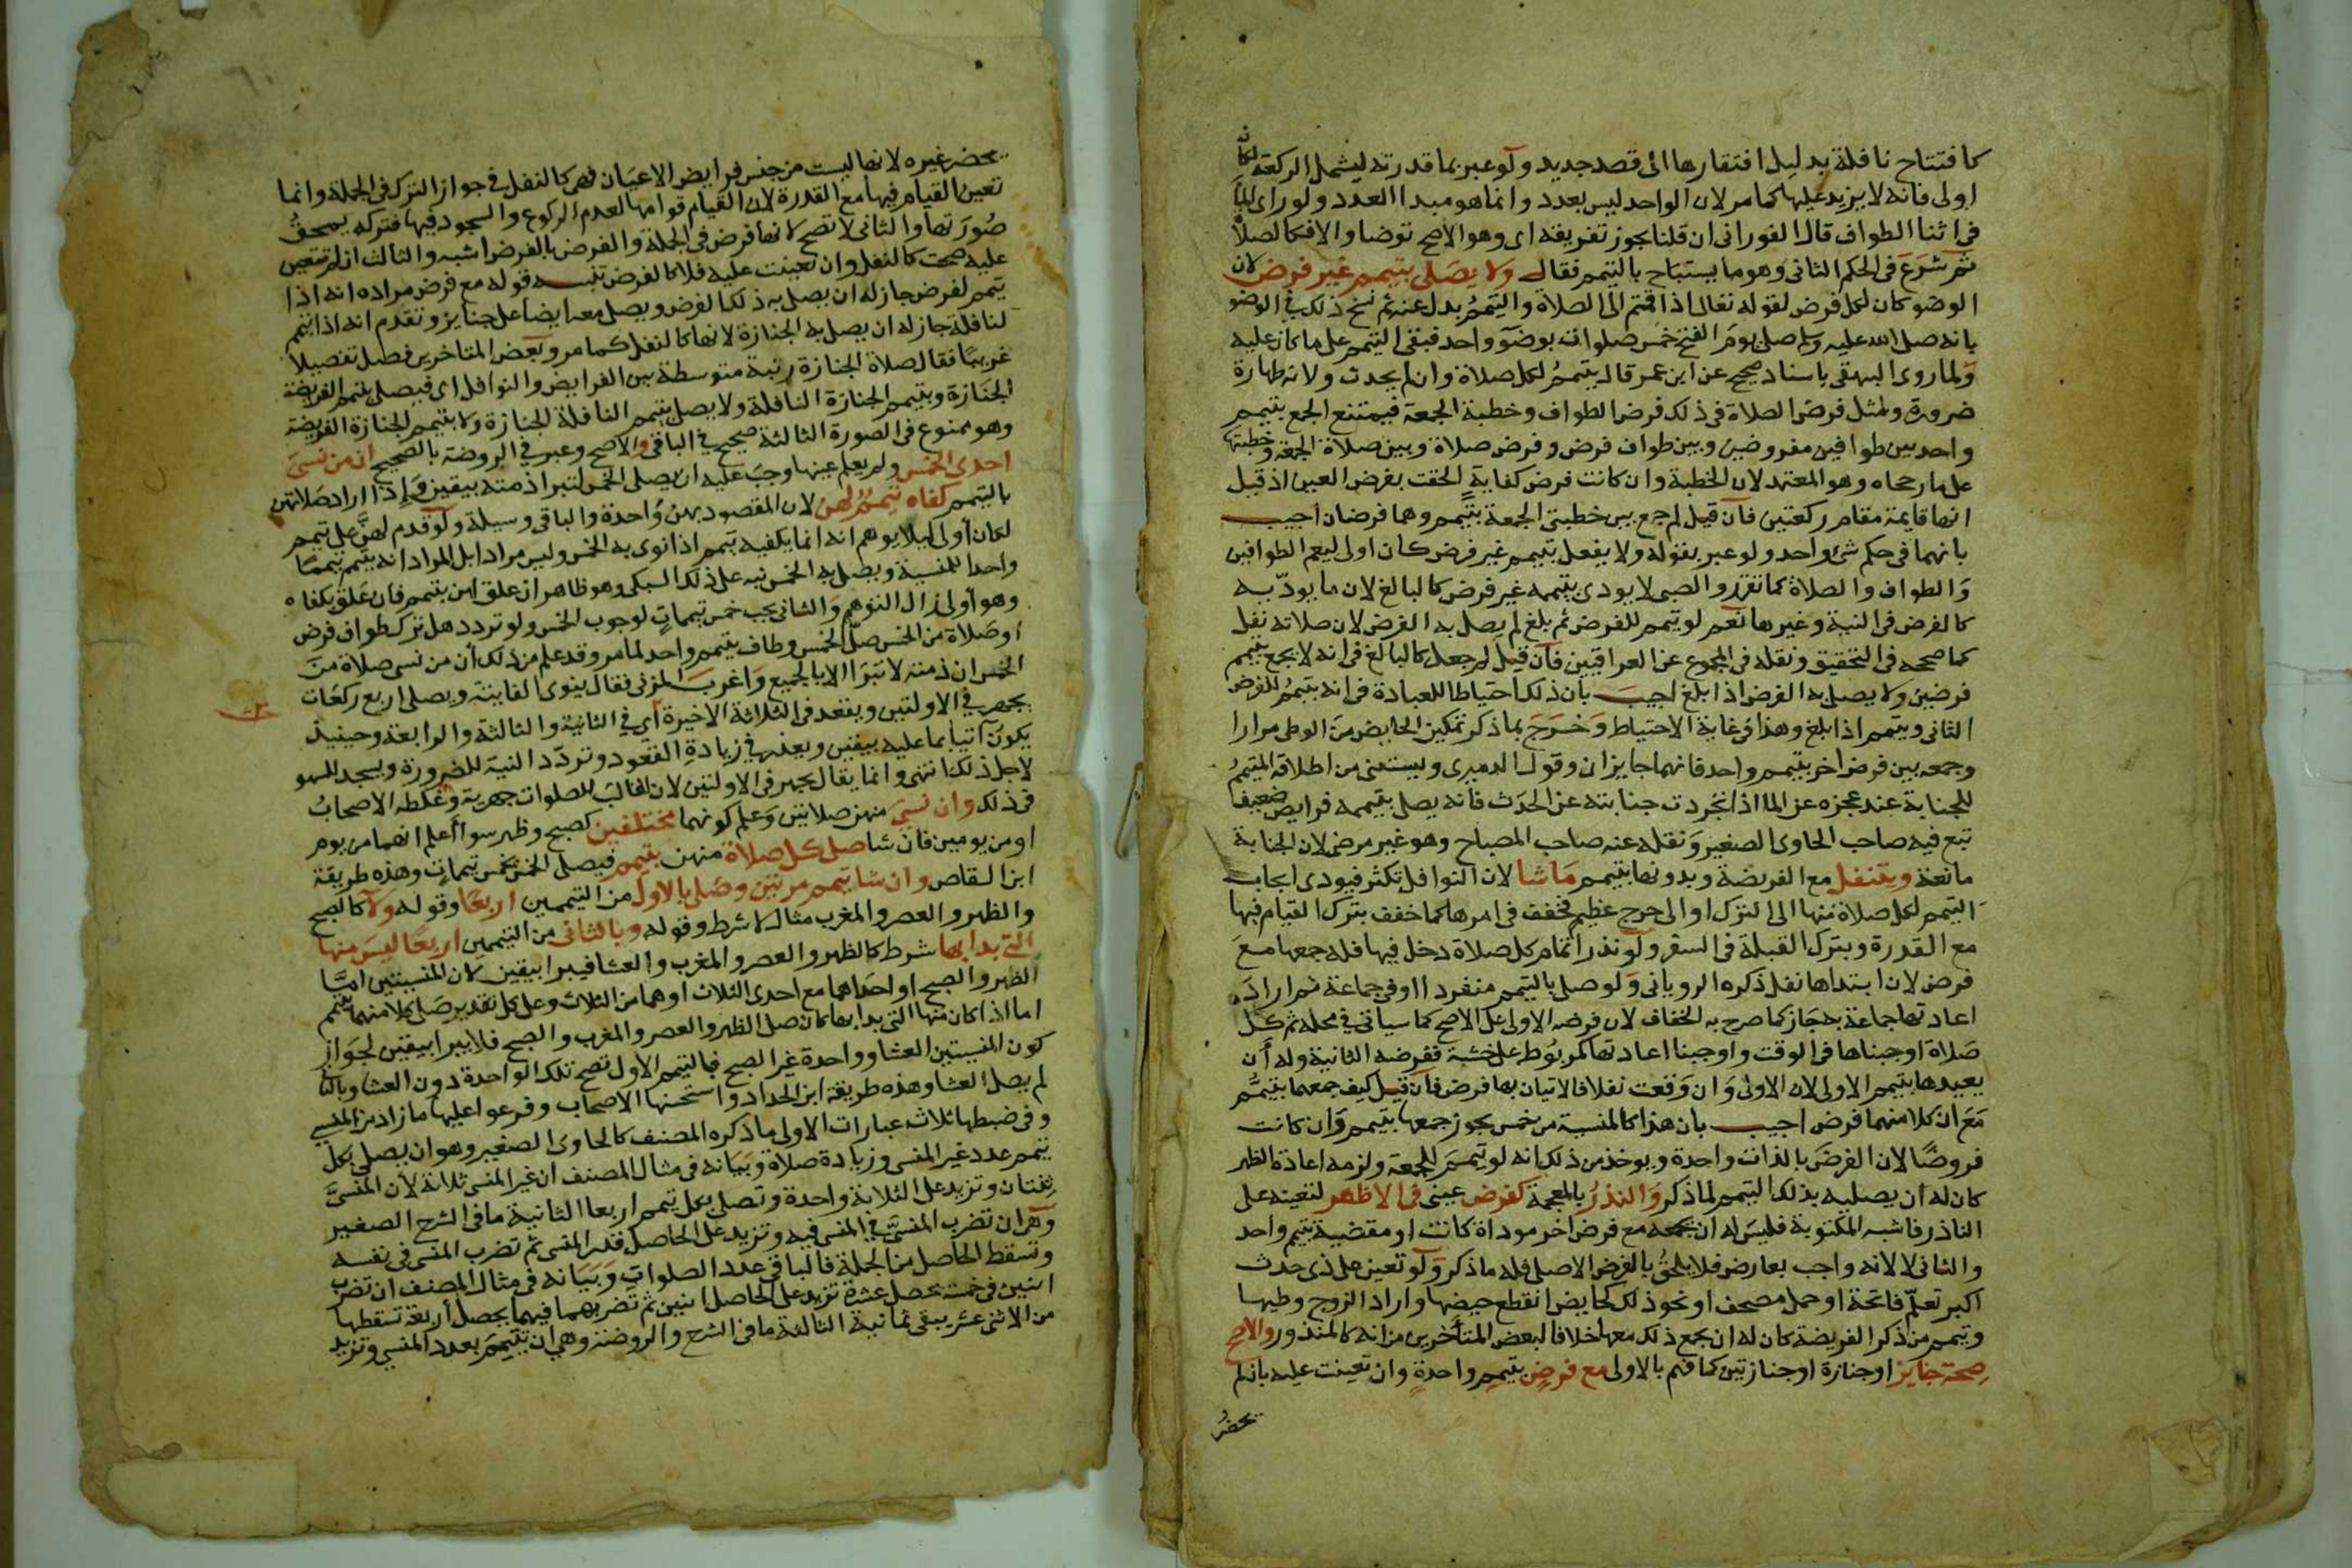 كافتتاح نافلة بدليل افتقارها الى قصد جديد ولو عبر بما قدرته ليشمل الركعة لكان
اولى فانه لا يزيد عليها كما مر لان الواحد ليس بعدد وانما هو مبدا العدد ولو راى الماء
فى اثنا الطواف قال الفورانى ان قلنا يجوز تفريقه اى وهو الاصح توضا والا فكالصلاة
ثم شرع فى الحكم الثانى وهو ما يستباح بالتيمم فقال ولا يصلى بتيمم غير فرض لان
الوضو كان لكل فرض لقوله تعالى اذا قمتم الى الصلاة والتيمم بدل عنه ثم نسخ ذلك فى الوضو
بانه صلى الله عليه وسلم صلى يوم الفتح خمس صلوات بوضو واحد فبقى التيمم على ما كان عليه
ولما روى البيهقى باسناد صحيح عن ابن عمر قال يتيمم لكل صلاة وان لم يحدث ولانه طهارة
ضرورة ومثل فرض الصلاة فى ذلك فرض الطواف وخطبة الجمعة فيمتنع الجمع بتيمم
واحد بين طوافين مفروضين وبين طواف فرض وفرض صلاة وبين صلاة الجمعة وخطبتها
على ما رجحاه وهو المعتمد لان الخطبة وان كانت فرض كفاية الحقت بفرض العين اذ قيل
انها قايمة مقام ركعتين فان قيل لم جمع بين خطبتى الجمعة بتيمم وهما فرضان اجيب
بانهما فى حكم شئ واحد ولو عبر بقوله ولا يفعل بتيمم غير فرض كان اولى ليعم الطوافين
والطواف والصلاة كما تقرر والصبى لا يودى بتيممه غير فرض كالبالغ لان ما يوديه
كالفرض فى النية وغيرها نعم لو تيمم للفرض ثم بلغ لم يصل به الفرض لان صلاته نفل
كما صححه فى التحقيق ونقله فى المجموع عن العراقيين فان قيل لم جعل كالبالغ فى انه لا يجمع بتيمم
فرضين ولا يصلى به الفرض اذا بلغ اجيب بان ذلك احتياطا للعبادة فى انه يتيمم للفرض
الثانى ويتيمم اذا بلغ وهذا فى غاية الاحتياط وخرج بما ذكر تمكين الحايض من الوطى مرارا
وجمعه بين فرض اخر بتيمم واحد فانهما جايزان وقول الدميرى ويستثنى من اطلاقه المتيمم
للجنابة عند عجزه عن الما اذا تجردت جنابته عن الحدث فانه يصلى بتيممه فرايض ضعيف
تبع فيه صاحب الحاوى الصغير ونقله عنه صاحب المصباح وهو غير مرض لان الجنابة
مانعة ويتنفل مع الفريضة وبدونها بتيمم ما شا لان النوافل تكثر فيودى ايجاب
التيمم لكل صلاة منها الى الترك او الى حرج عظيم فخفف فى امرها كما خفف بترك القيام فيها
مع القدرة وبترك القبلة فى السفر ولو نذر اتمام كل صلاة دخل فيها فله جمعها مع
فرض لان ابتداها نفل ذكره الرويانى ولو صلى بالتيمم منفردا او فى جماعة ثم اراد
اعادتها جماعة به جاز كما صرح به الخفاف لان فرضه الاولى على الاصح كما سياتى فى محله ثم كل
صلاة اوجبناها فى الوقت واوجبنا اعادتها كمربوط على خشبة ففرضه الثانية وله ان
يعيدها بتيمم الاولى لان الاولى وان وقعت نفلا فالاتيان بها فرض فان قيل كيف جمعهما بتيمم
مع ان كلا منهما فرض اجيب بان هذا كالمنسية من خمس يجوز جمعها بتيمم وان كانت
فروضا لان الفرض بالذات واحدة ويوخذ من ذلك انه لو تيمم للجمعة ولزمه اعادة الظهر
كان له ان يصليه بذلك التيمم لما ذكر والنذر بالمعجمة كفرض عينى فى الاظهر لتعينه على
الناذر فاشبه المكتوبة فليس له ان يجمعه مع فرض اخر موداة كانت او مقضية بتيمم واحد
والثانى لا لانه واجب بعارض فلا يلحق بالفرض الاصلى فله ما ذكر ولو تعين على ذى حدث
اكبر تعلم فاتحة او حمل مصحف او نحو ذلك كحايض انقطع حيضها واراد الزوج وطيها
وتيمم من ذكر الفريضة كان له ان يجمع ذلك معها خلافا لبعض المتأخرين من انه كالمنذور والاصح
صحة جنايز او جنازة او جنازتين كما فهم بالاولى مع فرض بتيمم واحدة وان تعينت عليه بان لم
يحضر
يحضر غيره لانها ليست من جنس فرايض الاعيان فهى كالنفل فى جواز الترك فى الجملة وانما
تعين القيام فيها مع القدرة لان القيام قوامها لعدم الركوع والسجود فيها فتركه يمحق
صورتها والثانى لا تصح لانها فرض فى الجملة والفرض بالفرض اشبه والثالث ان لم تتعين
عليه صحت كالنفل وان تعينت عليه فلا كالفرض تنبيه قوله مع فرض مراده انه اذا
تيمم لفرض جاز له ان يصلى به ذلك الفرض ويصلى معه ايضا على جنايز وتقدم انه اذا تيمم
لنافلة جاز له ان يصلى به الجنازة لانها كالنفل كما مر وبعض المتاخرين فصل تفصيلا
غريبا فقال صلاة الجنازة رتبة متوسطة بين الفرايض والنوافل اى فيصلى بتيمم الفريضة
الجنازة وبتيمم الجنازة النافلة ولا يصلى بتيمم النافلة الجنازة ولا بتيمم الجنازة الفريضة
وهو ممنوع فى الصورة الثالثة صحيح فى الباقى والاصح وعبر فى الروضة بالصحيح ان من نسى
احدى الخمس ولم يعلم عينها وجب عليه ان يصلى الخمس لتبرا ذمته بيقين واذا اراد صلاتهن
بالتيمم كفاه تيمم لهن لان المقصود بهن واحدة والباقى وسيلة ولو قدم لهن على تيمم
لكان أولى ليلا يوهم انه انما يكفيه تيمم اذا نوى به الخمس وليس مرادا بل المراد انه يتيمم تيمما
واحدا للمنسية ويصلى به الخمس نبه على ذلك السبكى وهو ظاهر ان علق لهن بتيمم فان علق بكفاه
وهو أولى زال التوهم والثانى يجب خمس تيممات لوجوب الخمس ولو تردد هل ترك طواف فرض
او صلاة من الخمس صلى الخمس وطاف بتيمم واحد لما مر وقد علم من ذلك أن من نسى صلاة من
الخمس ان ذمته لا تبرا الا بالجميع واغرب المزنى فقال ينوى الفايتة ويصلى اربع ركعات
يجهر فى الاولتين ويقعد فى الثلاثة الاخيرة أي فى الثانية والثالثة والرابعة وحينيذ
يكون آتيا بما عليه بيقين ويعذر فى زيادة القعود وتردد النية للضرورة ويسجد للسهو
لاجل ذلك انتهى وانما يقال يجهر فى الاولتين لان الغالب للصلوات جهرية وغلطه الاصحاب
فى ذلك وان نسى منهن صلاتين وعلم كونهما مختلفين كصبح وظهر سوا أعلم انهما من يوم
او من يومين فان شا صلى كل صلاة منهن بتيمم فيصلى الخمس بخمس تيممات وهذه طريقة
ابن القاص وان شا تيمم مرتين وصلى بالاول من التيممين اربعا وقوله ولا كالصبح
والظهر والعصر والمغرب مثال لا شرط وقوله وبالثانى من التيممين اربعا ليس منها
التى بدا بها شرط كالظهر والعصر والمغرب والعشا فيبرا بيقين لان المنسيتين اما
الظهر والصبح او احداهما مع احدى الثلاث او هما من الثلاث وعلى كل تقدير صلى كلا منهما بتيمم
اما اذا كان منها التى بدا بها كان صلى الظهر والعصر والمغرب والصبح فلا يبرا بيقين لجواز
كون المنسيتين العشا وواحدة غير الصبح فبالتيمم الاول تصح تلك الواحدة دون العشا وبالثانى
لم يصل العشا وهذه طريقة ابن الحداد واستحسنها الاصحاب وفرعوا عليها ما زاد من المنسى
وفى ضبطها ثلاث عبارات الاولى ما ذكره المصنف كالحاوى الصغير وهو ان يصلى بكل
تيمم عدد غير المنسى وزيادة صلاة وبيانه فى مثال المصنف ان غير المنسى ثلاثة لأن المنسى
ثنتان وتزيد على الثلاثة واحدة وتصلى بكل تيمم اربعا الثانية ما فى الشرح الصغير
وهو ان تضرب المنسى فى المنسى فيه وتزيد على الحاصل قدر المنسى ثم تضرب المنسى فى نفسه
وتسقط الحاصل من الجملة فالباقى عدد الصلوات وبيانه فى مثال المصنف ان تضرب
اثنين فى خمسة تحصل عشرة تزيد على الحاصل اثنين ثم تضربهما فيهما يحصل أربعة تسقطها
من الاثنى عشر يبقى ثمانية الثالثة ما فى الشرح والروضة وهى ان يتيمم بعدد المنسى وتزيد